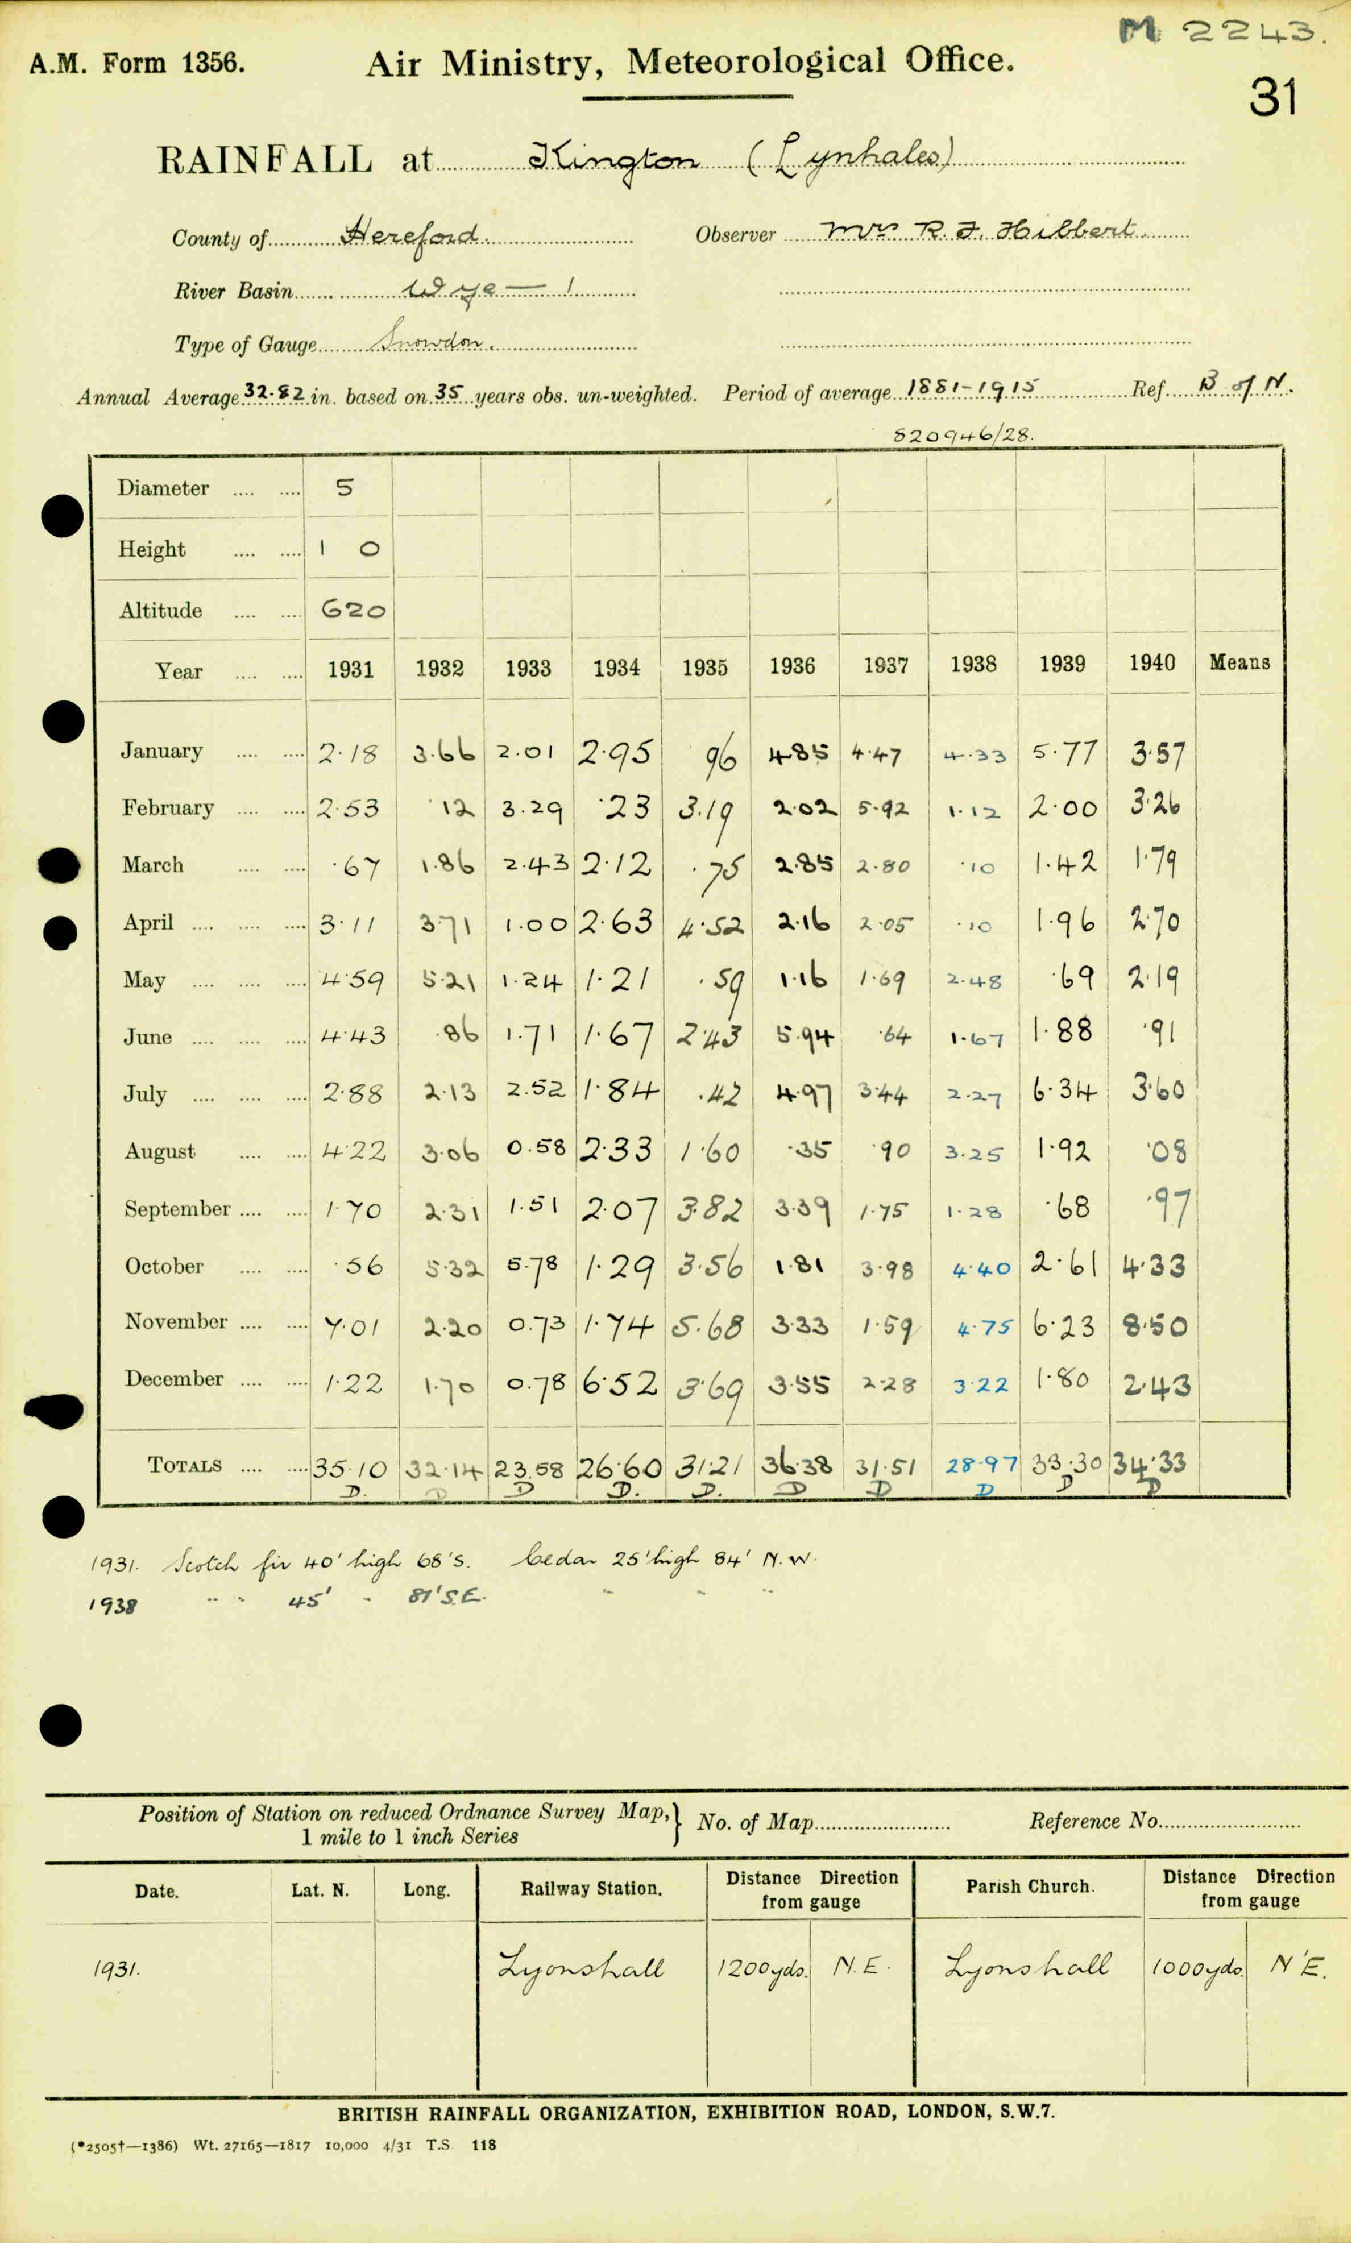 M 2243.
A.M. Form 1356. Air Ministry, Meteorological Office.
31
RAINFALL at Kington (Lynhales)
County of Hereford. Observer Mrs R. F. Hibbert.
River Basin Wye — 1
Type of Gauge Snowdon.
Annual Average 32.82 in. based on 35 years obs. un-weighted. Period of average 1881-1915 Ref. B of N.
820946/28.
Diameter .... .... 5
Height .... .... 1 0
Altitude .... .... 620
Year .... .... 1931 1932 1933 1934 1935 1936 1937 1938 1939 1940 Means
January .... .... 2.18 3.66 2.01 2.95 .96 4.85 4.47 4.33 5.77 3.57
February .... .... 2.53 .12 3.29 .23 3.19 2.02 5.92 1.12 2.00 3.26
March .... .... .67 1.86 2.43 2.12 .75 2.85 2.80 .10 1.42 1.79
April .... .... .... 3.11 3.71 1.00 2.63 4.52 2.16 2.05 .10 1.96 2.70
May .... .... .... 4.59 5.21 1.24 1.21 .59 1.16 1.69 2.48 .69 2.19
June .... .... .... 4.43 .86 1.71 1.67 2.43 5.94 .64 1.67 1.88 .91
July .... .... .... 2.88 2.13 2.52 1.84 .42 4.97 3.44 2.27 6.34 3.60
August .... .... 4.22 3.06 0.58 2.33 1.60 .35 .90 3.25 1.92 .08
September .... .... 1.70 2.31 1.51 2.07 3.82 3.39 1.75 1.28 .68 .97
October .... .... .56 5.32 5.78 1.29 3.56 1.81 3.98 4.40 2.61 4.33
November .... .... 7.01 2.20 0.73 1.74 5.68 3.33 1.59 4.75 6.23 8.50
December .... .... 1.22 1.70 0.78 6.52 3.69 3.55 2.28 3.22 1.80 2.43
TOTALS .... .... 35.10 32.14 23.58 26.60 31.21 36.38 31.51 28.97 33.30 34.33
D. D D D. D. D D D D D
1931. Scotch fir 40' high 68' S. Cedar 25' high 84' N.W.
1938 " " 45' " 81' S.E. " " "
Position of Station on reduced Ordnance Survey Map,} No. of Map Reference No.
1 mile to 1 inch Series
Date. Lat. N. Long. Railway Station. Distance Direction from gauge Parish Church. Distance Direction from gauge
1931. Lyonshall 1200yds. N.E. Lyonshall 1000yds. N'E.
BRITISH RAINFALL ORGANIZATION, EXHIBITION ROAD, LONDON, S.W.7.
(*2505†—1386) Wt. 27165—1817 10,000 4/31 T.S. 118